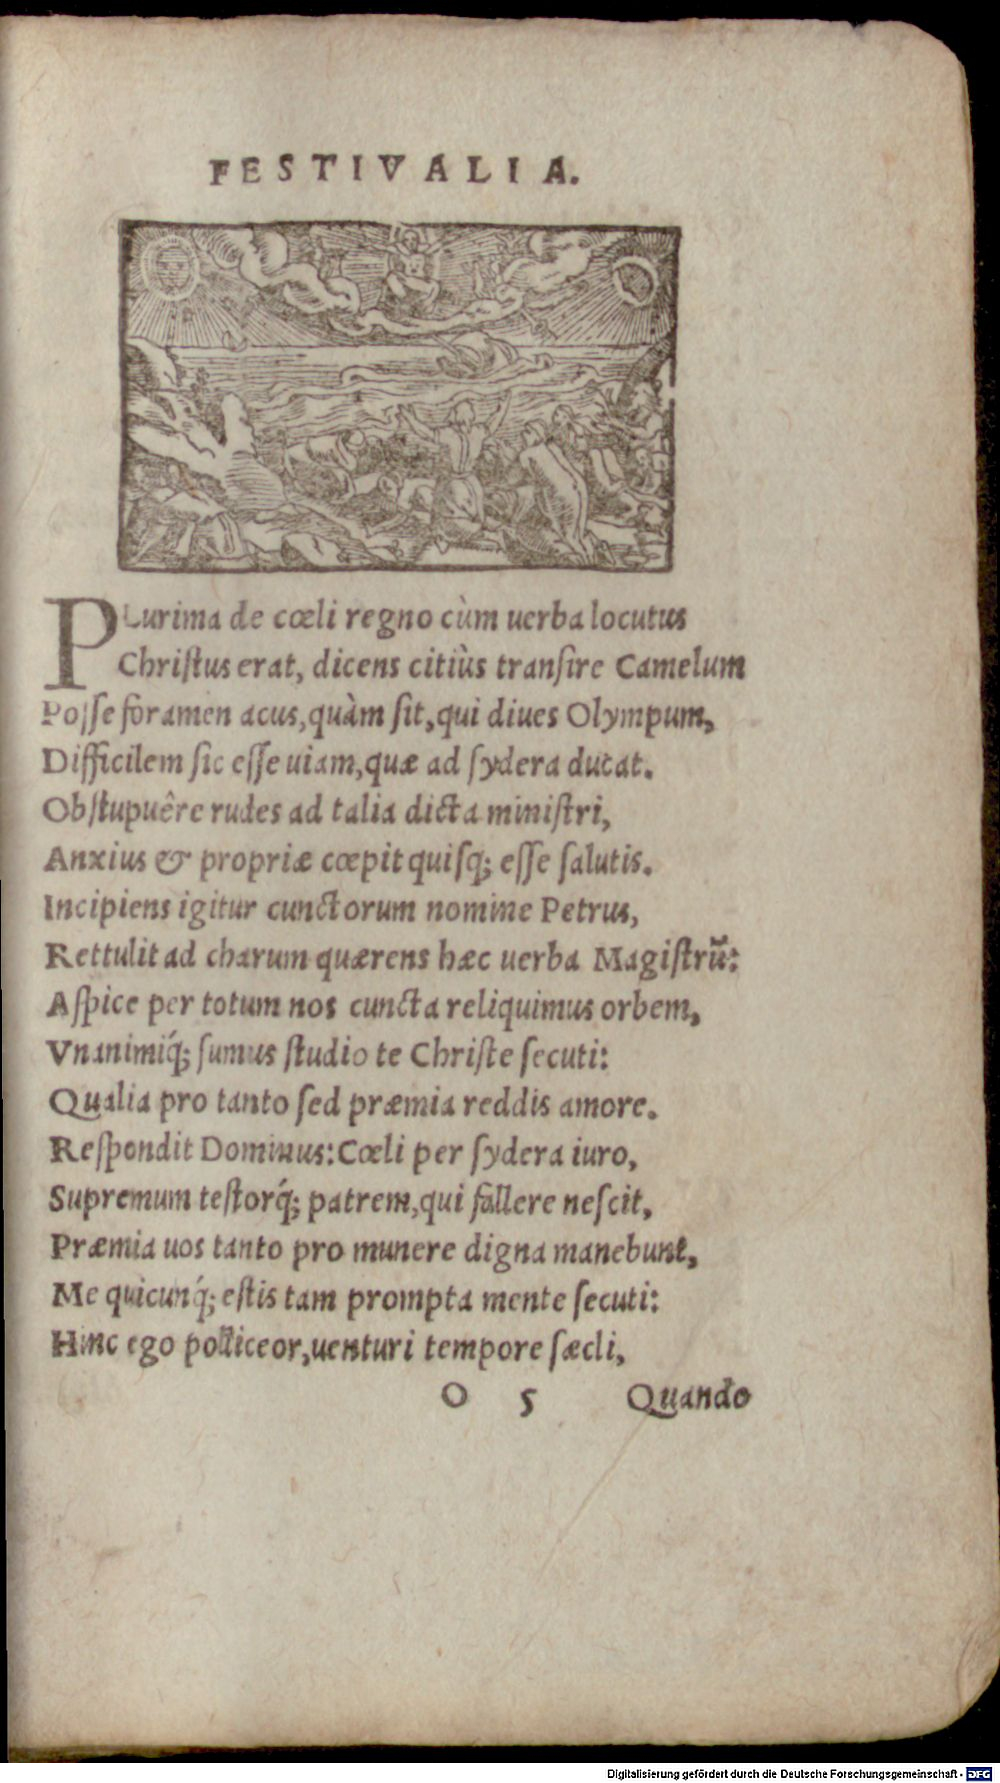 FESTIVALIA.
PLurima de cœli regno cùm uerba locutus
Chriſtus erat, dicens citiùs tranſire Camelum
Poſſe foramen acus, quàm ſit, qui diues Olympum,
Difficilem ſic eſſe uiam, quæ ad ſydera ducat.
Obſtupuêre rudes ad talia dicta miniſtri,
Anxius & propriæ cœpit quiſq; eſſe ſalutis.
Incipiens igitur cunctorum nomine Petrus,
Rettulit ad charum quærens hæc uerba Magiſtrũ:
Aſpice per totum nos cuncta reliquimus orbem,
Vnanimiq́; ſumus ſtudio te Chriſte ſecuti:
Qualia pro tanto ſed præmia reddis amore.
Reſpondit Dominus: Cœli per ſydera iuro,
Supremum teſtorq́; patrem, qui fallere neſcit,
Præmia uos tanto pro munere digna manebunt,
Me quicunq́; eſtis tam prompta mente ſecuti:
Hinc ego polliceor, uenturi tempore ſæcli,
O 5 Quando
Digitalisierung gefördert durch die Deutsche Forschungsgemeinschaft - DFG